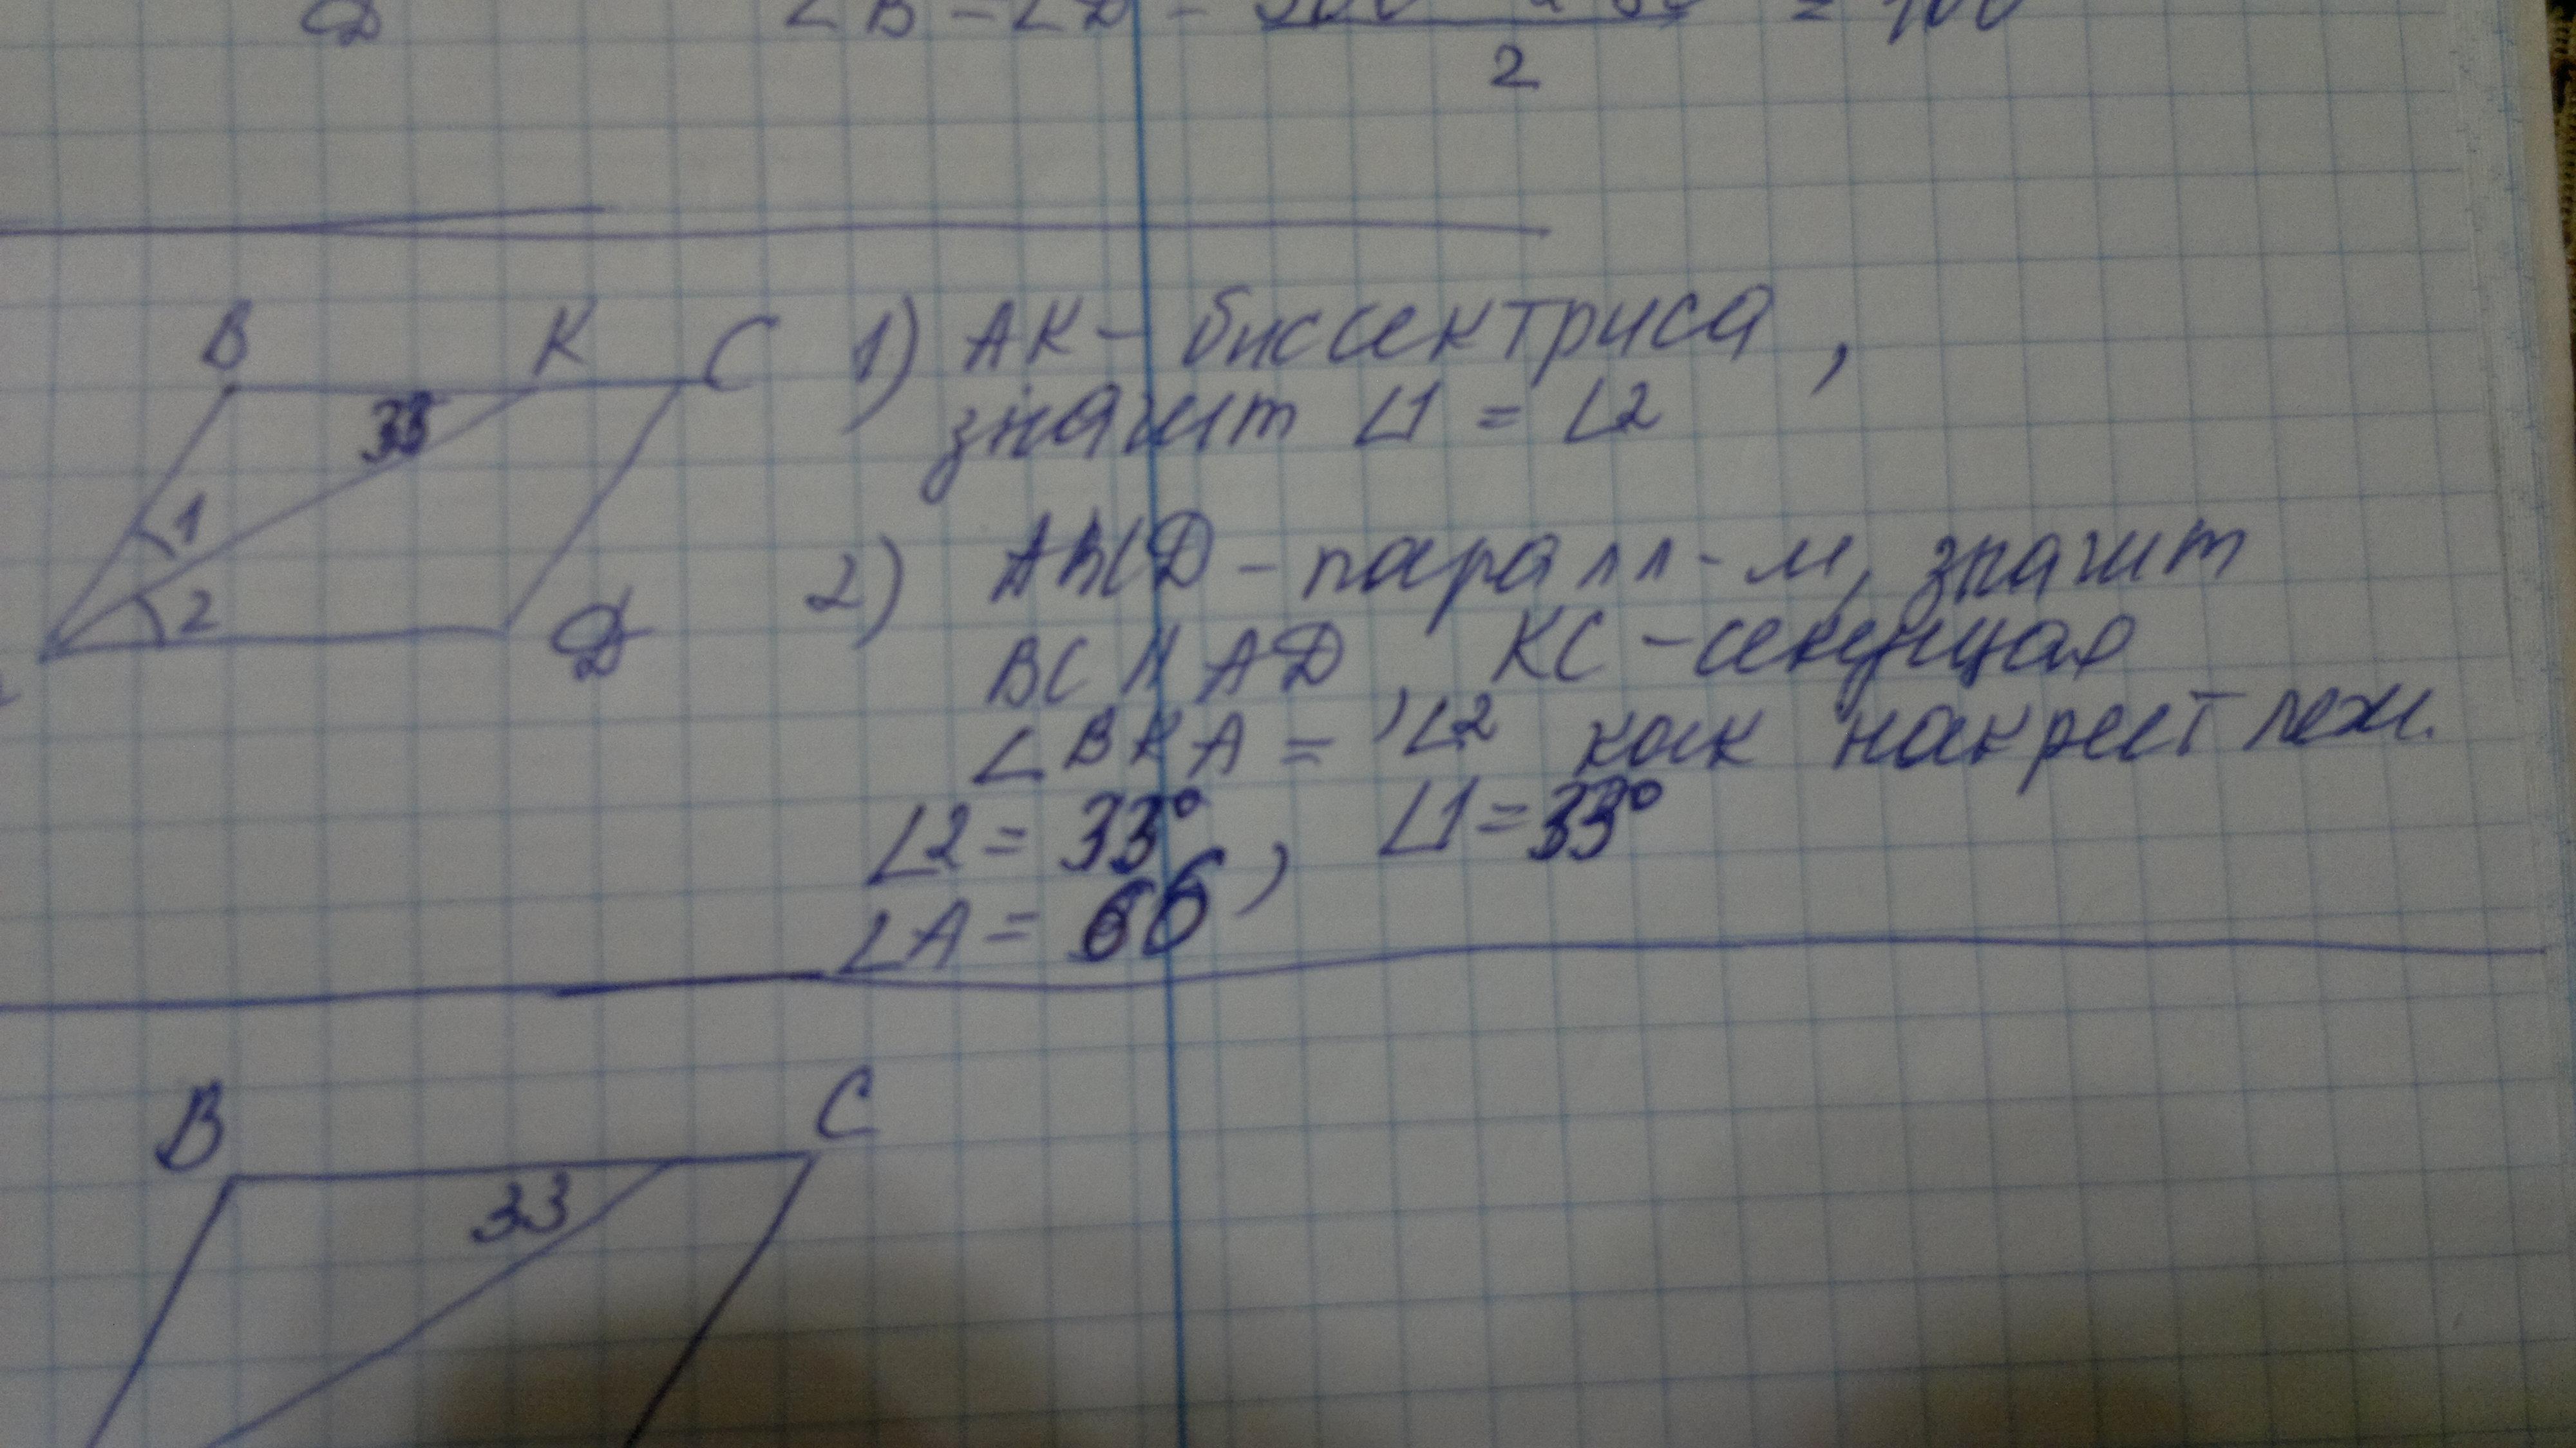 Д
∠B = ∠D =
2
B K C
33
1
2
Д
1) АК - биссектриса,
значит ∠1 = ∠2
2) АВСД - паралл-м, значит
ВС || АД, КС - секущая
∠ВКА = ∠2 как накрест леж.
∠2 = 33°, ∠1 = 33°
∠А = 66
B C
33